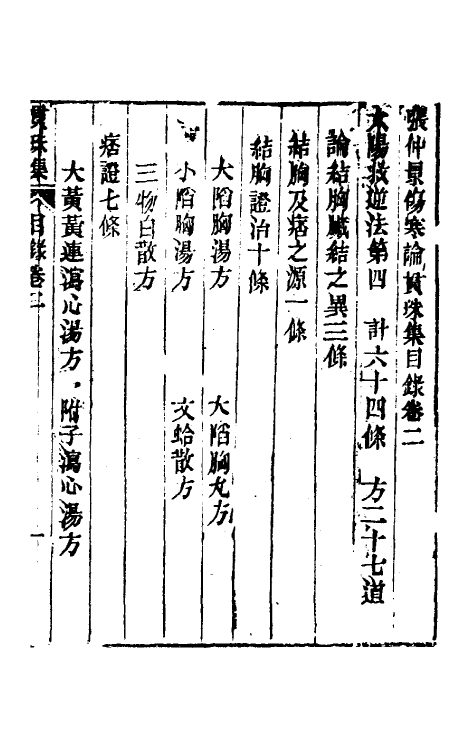 張仲景傷寒論貫珠集目錄卷二
太陽救逆法第四　計六十四條　方二十七道
論結胸臟結之異三條
結胸及痞之源一條
結胸證治十條
大陷胸湯方　大陷胸丸方
小陷胸湯方　文蛤散方
三物白散方
痞證七條
大黃黃連瀉心湯方，附子瀉心湯方
貫珠集　目錄卷二　一